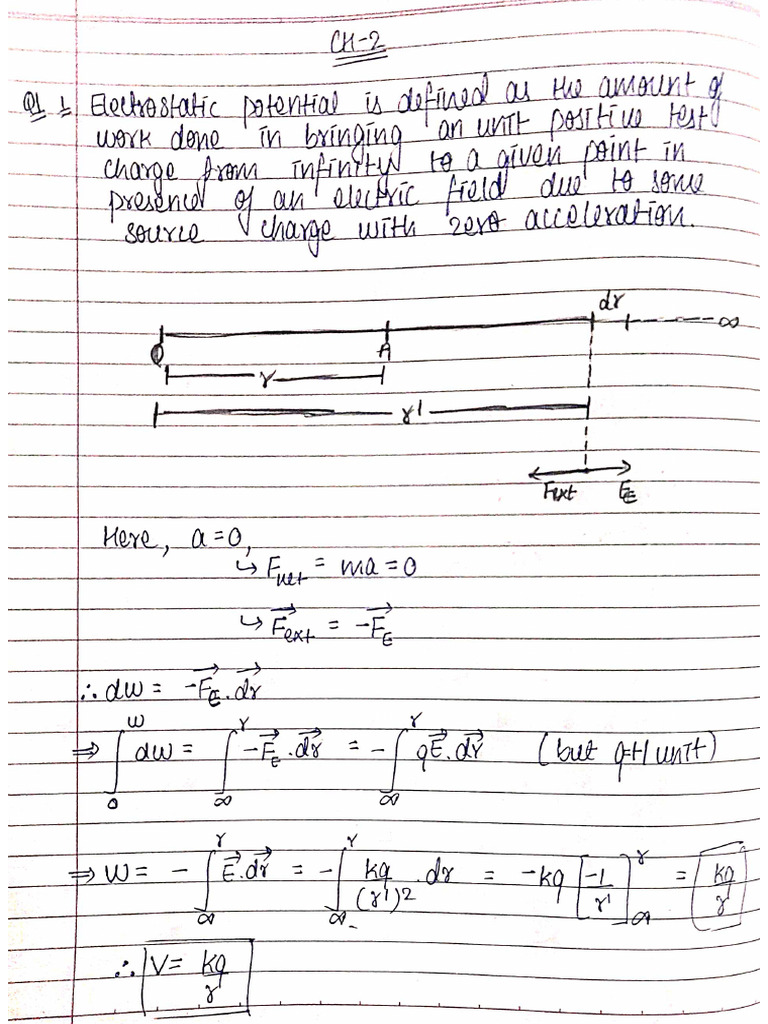 CH-2
Q1 1 Electrostatic potential is defined as the amount of
work done in bringing an unit positive test
charge from infinity to a given point in
presence of an electric field due to some
source charge with zero acceleration.
dr
∞
Q A
r
r'
Fext FE
Here, a=0,
↳ Fnet = ma = 0
↳ →Fext = -→FE
∴ dw = -→FE . →dr
⇒ ∫₀ʷ dw = ∫∞ʳ -→FE . →dr = -∫∞ʳ q→E . →dr (but q=+1 unit)
⇒ W = -∫∞ʳ →E . →dr = -∫∞ʳ kq/(r')2 . dr = -kq [-1/r']∞ʳ = kq/r
∴ V = kq/r